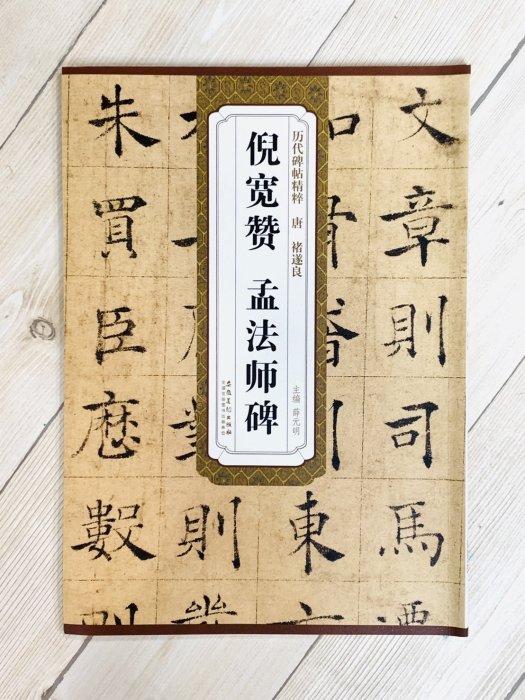 文章則司馬
東
历代碑帖精粹 唐 褚遂良
主编 薛元明
倪宽赞 孟法师碑
安徽美术出版社
則
朱買臣歷數